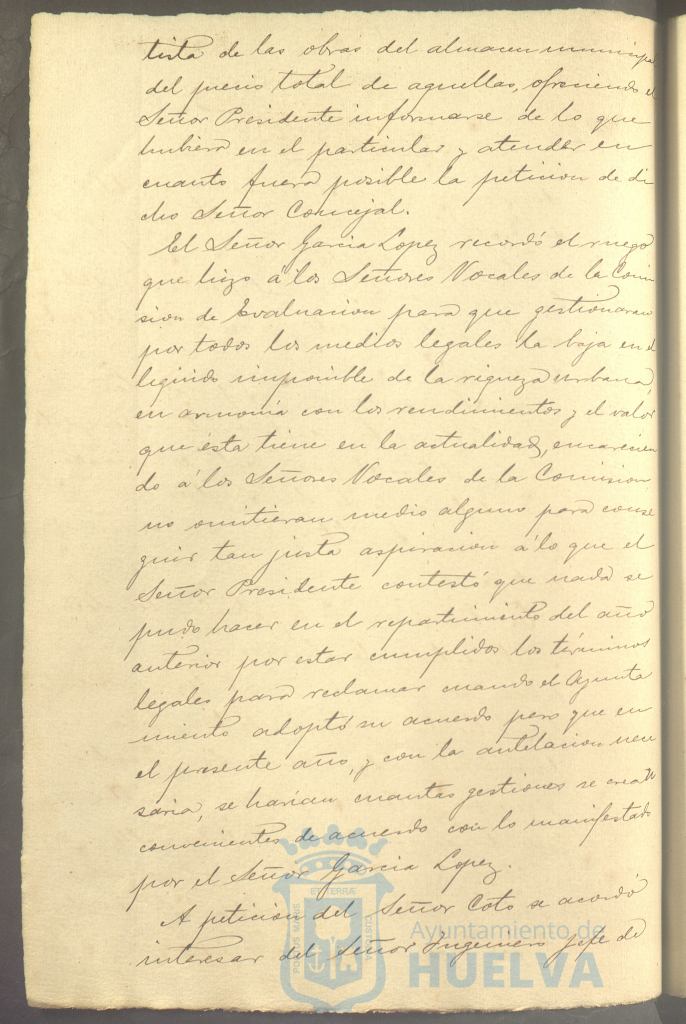 tista de las obras del almacen municipa
del precio total de aquellas, ofreciendo el
Señor Presidente informarse de lo que
hubiera en el particular y atender en
cuanto fuera posible la peticion de di
cho Señor Concejal.
El Señor Garcia Lopez recordó el ruego
que hizo á los Señores Vocales de la Comi
sion de Evaluacion para que gestionaran
por todos los medios legales la baja en el
liquido imponible de la riqueza urbana,
en armonia con los rendimientos y el valor
que esta tiene en la actualidad, encarecien
do á los Señores Vocales de la Comision
no omitieran medio alguno para conse
guir tan justa aspiracion á lo que el
Señor Presidente contestó que nada se
pudo hacer en el repartimiento del año
anterior por estar cumplidos los términos
legales para reclamar cuando el Ayunta
miento adoptó su acuerdo pero que en
el presente año, y con la antelacion nece
saria, se harian cuantas gestiones se crean
convenientes de acuerdo con lo manifestado
por el Señor Garcia Lopez.
A peticion del Señor Coto se acordó
interesar del Señor Ingeniero Jefe de
PORTUS MARIS ET TERRÆ CUSTODIA
Ayuntamiento de
HUELVA